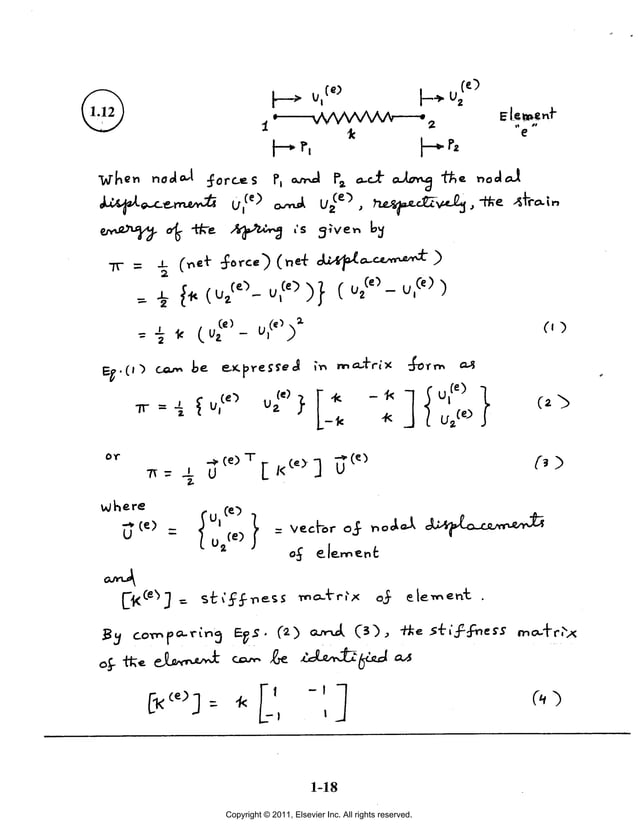 1.12
U₁⁽ᵉ⁾ U₂⁽ᵉ⁾
1 k 2 Element "e"
P₁ P₂
When nodal forces P₁ and P₂ act along the nodal
displacements U₁⁽ᵉ⁾ and U₂⁽ᵉ⁾, respectively, the strain
energy of the spring is given by
π = ½ (net force) (net displacement)
= ½ {k (U₂⁽ᵉ⁾ − U₁⁽ᵉ⁾)} (U₂⁽ᵉ⁾ − U₁⁽ᵉ⁾)
= ½ k (U₂⁽ᵉ⁾ − U₁⁽ᵉ⁾)² (1)
Eq. (1) can be expressed in matrix form as
π = ½ {U₁⁽ᵉ⁾ U₂⁽ᵉ⁾} [k −k; −k k] {U₁⁽ᵉ⁾; U₂⁽ᵉ⁾} (2)
or
π = ½ U⃗⁽ᵉ⁾ᵀ [K⁽ᵉ⁾] U⃗⁽ᵉ⁾ (3)
where
U⃗⁽ᵉ⁾ = {U₁⁽ᵉ⁾; U₂⁽ᵉ⁾} = vector of nodal displacements
of element
and
[K⁽ᵉ⁾] = stiffness matrix of element.
By comparing Eqs. (2) and (3), the stiffness matrix
of the element can be identified as
[K⁽ᵉ⁾] = k [1 −1; −1 1] (4)
1-18
Copyright © 2011, Elsevier Inc. All rights reserved.